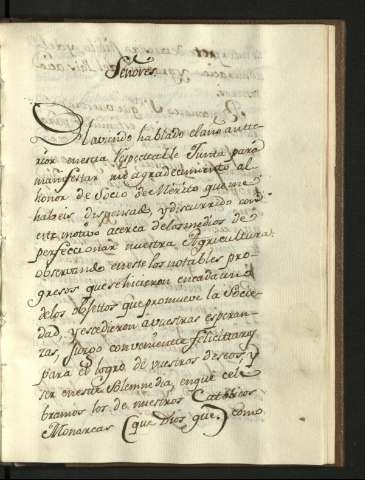 Señores
Haviendo hablado el año ante-
rior en esta respectable Junta para
manifestar mi agradecimiento al
honor de Socio de Merito que me
habeis dispensado, y discurrido con
este motivo acerca de los medios de
perfeccionar nuestra Agricultura;
observando en este los notables pro-
gresos que se hicieron en cada uno
de los objettos que promueve la Socie-
dad, y escedieron a vuestras esperan-
zas, juzgo conveniente felicittaros
para el logro de vuestros deseos, y
ser en este Solemne dia, en que cele-
bramos los de nuestros Catolicos
Monarcas (que Dios gue.) como